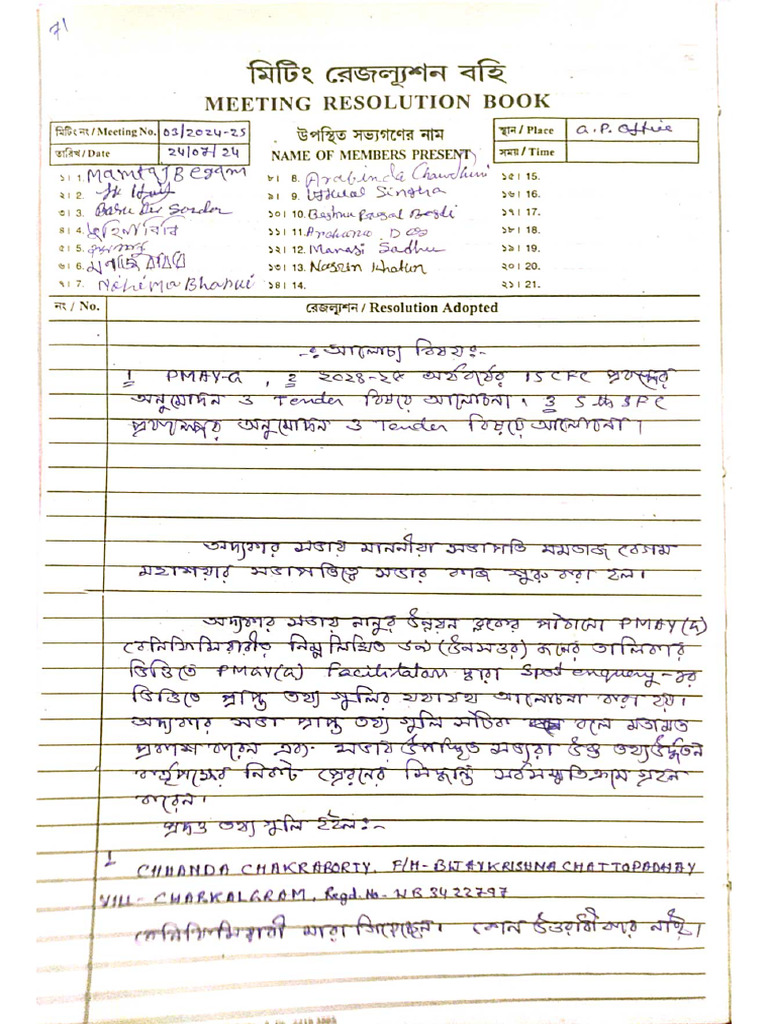 71
মিটিং রেজল্যুশন বহি
MEETING RESOLUTION BOOK
মিটিং নং / Meeting No. 03/2024-25
তারিখ / Date 24/07/24
উপস্থিত সভ্যগণের নাম
NAME OF MEMBERS PRESENT
স্থান / Place G.P. Office
সময় / Time
১। 1. Mamtaj Begam
২। 2.
৩। 3. Basu Deb Sardar
৪। 4. তুহিনা বিবি
৫। 5.
৬। 6.
৭। 7. Nohima Bhanui
৮। 8. Arabinda Chowdhuri
৯। 9. Singha
১০। 10. Bagdi
১১। 11. Archana Das
১২। 12. Manasi Sadhu
১৩। 13. Nasrin Khatun
১৪। 14.
১৫। 15.
১৬। 16.
১৭। 17.
১৮। 18.
১৯। 19.
২০। 20.
২১। 21.
নং / No.
রেজল্যুশন / Resolution Adopted
-ঃ আলোচ্য বিষয়ঃ-
1 PMAY-G, 2 ২০২৪-২৫ অর্থবর্ষের 15 CFC প্রকল্পের
অনুমোদন ও Tender বিষয়ে আলোচনা। 3 5th SFC
প্রকল্পের অনুমোদন ও Tender বিষয়ে আলোচনা।
অদ্যকার সভায় মাননীয়া সভাপতি মমতাজ বেগম
মহাশয়ার সভাপতিত্বে সভার কাজ শুরু করা হল।
অদ্যকার সভায় নানুর উন্নয়ন ব্লকের পাঠানো PMAY(G)
বেনিফিসিয়ারীর নিম্নলিখিত ৬৯ (উনসত্তর) জনের তালিকার
ভিত্তিতে PMAY(G) Facilitator দ্বারা Spot enquery-র
ভিত্তিতে প্রাপ্ত তথ্য গুলির যথাযথ আলোচনা করা হয়।
অদ্যকার সভা প্রাপ্ত তথ্য গুলি সঠিক বলে মতামত
প্রকাশ করেন এবং সভায় উপস্থিত সভ্যরা উক্ত তথ্য উর্দ্ধতন
কর্তৃপক্ষের নিকট প্রেরনের সিদ্ধান্ত সর্বসম্মতিক্রমে গ্রহন
করেন।
প্রদত্ত তথ্য গুলি হইল:-
1 CHHANDA CHAKRABORTY, F/H- BIJAYKRISHNA CHATTOPADHAY
VILL- CHARKALGRAM, Regd. No- WB 3422797
বেনিফিসিয়ারী মারা গিয়েছেন। কোন উত্তরাধীকার নাই।